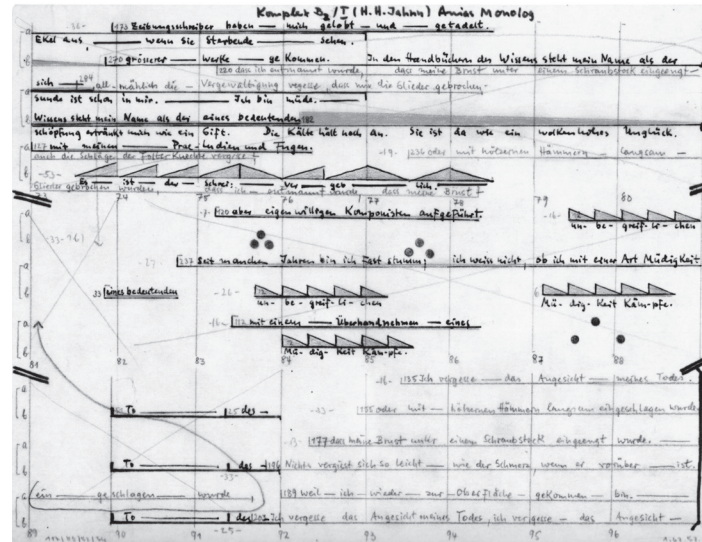 Komplex B2/I (H.H. Jahnn) Anias Monolog
173 Zeitungsschreiber haben — mich gelobt — und — getadelt.
Ekel aus, — wenn sie Sterbende — sehen.
270 grösserer — werke — ge kommen. In den Handbüchern des Wissens steht mein Name als der
220 dass ich entmannt wurde, dass meine Brust unter einem Schraubstock eingeengt —
sich — 284 all-mählich die — Vergewaltigung vergesse, dass mir die Glieder gebrochen.
sunde ist schon in mir. — Ich bin müde. —
Wissens steht mein Name als der eines bedeutenden 182
schöpfung ertränkt mich wie ein Gift. Die Kälte hüllt mich an. Sie ist da wie ein wolkenhohes Unglück.
127 mit meinen — Prae-ludien und Fugen. -19- 236 oder mit hölzernen Hämmern — langsam —
auch die Schläge der Folterknechte vergesse!
-53- Es — ist — der — Schrei: — Ver — geb — lich.
Glieder gebrochen wurden, dass ich — entmannt wurde, dass meine Brust —
73 74 75 76 77 78
79 80
-7- 120 aber eigenwilligen Komponisten aufgeführt. -16- un- be- greif- li- chen
-33-
-27- 137 Seit manchen Jahren bin ich fast stumm; ich weiss nicht, ob ich mit einer Art Müdigkeit
33 eines bedeutenden -26- un- be- greif- li- chen Mü- dig- keit Kämpfe.
-16- 112 mit einem — Überhandnehmen — eines
Mü- dig- keit Kämpfe.
81 82 83 84 85 86 87 88
-16- 135 Ich vergesse — das Angesicht — meines Todes.
To — des — -23- 135 oder mit — hölzernen Hämmern langsam eingeschlagen wurde.
-13- 177 dass meine Brust unter einem Schraubstock eingeengt wurde. —
To — des — 196 Nichts vergisst sich so leicht — wie der Schmerz, wenn er vorüber — ist.
-33-
ein — geschlagen — wurde 189 weil — ich — wieder — zur Oberfläche — gekommen — bin. —
To — des 202 Ich vergesse das Angesicht meines Todes, ich vergesse — das Angesicht —
89 90 91 -25- 92 93 94 95 96